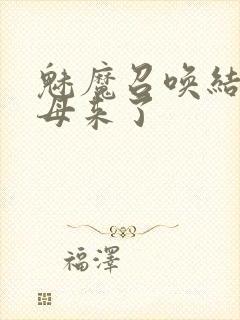 魅魔召唤結
母来了
福澤